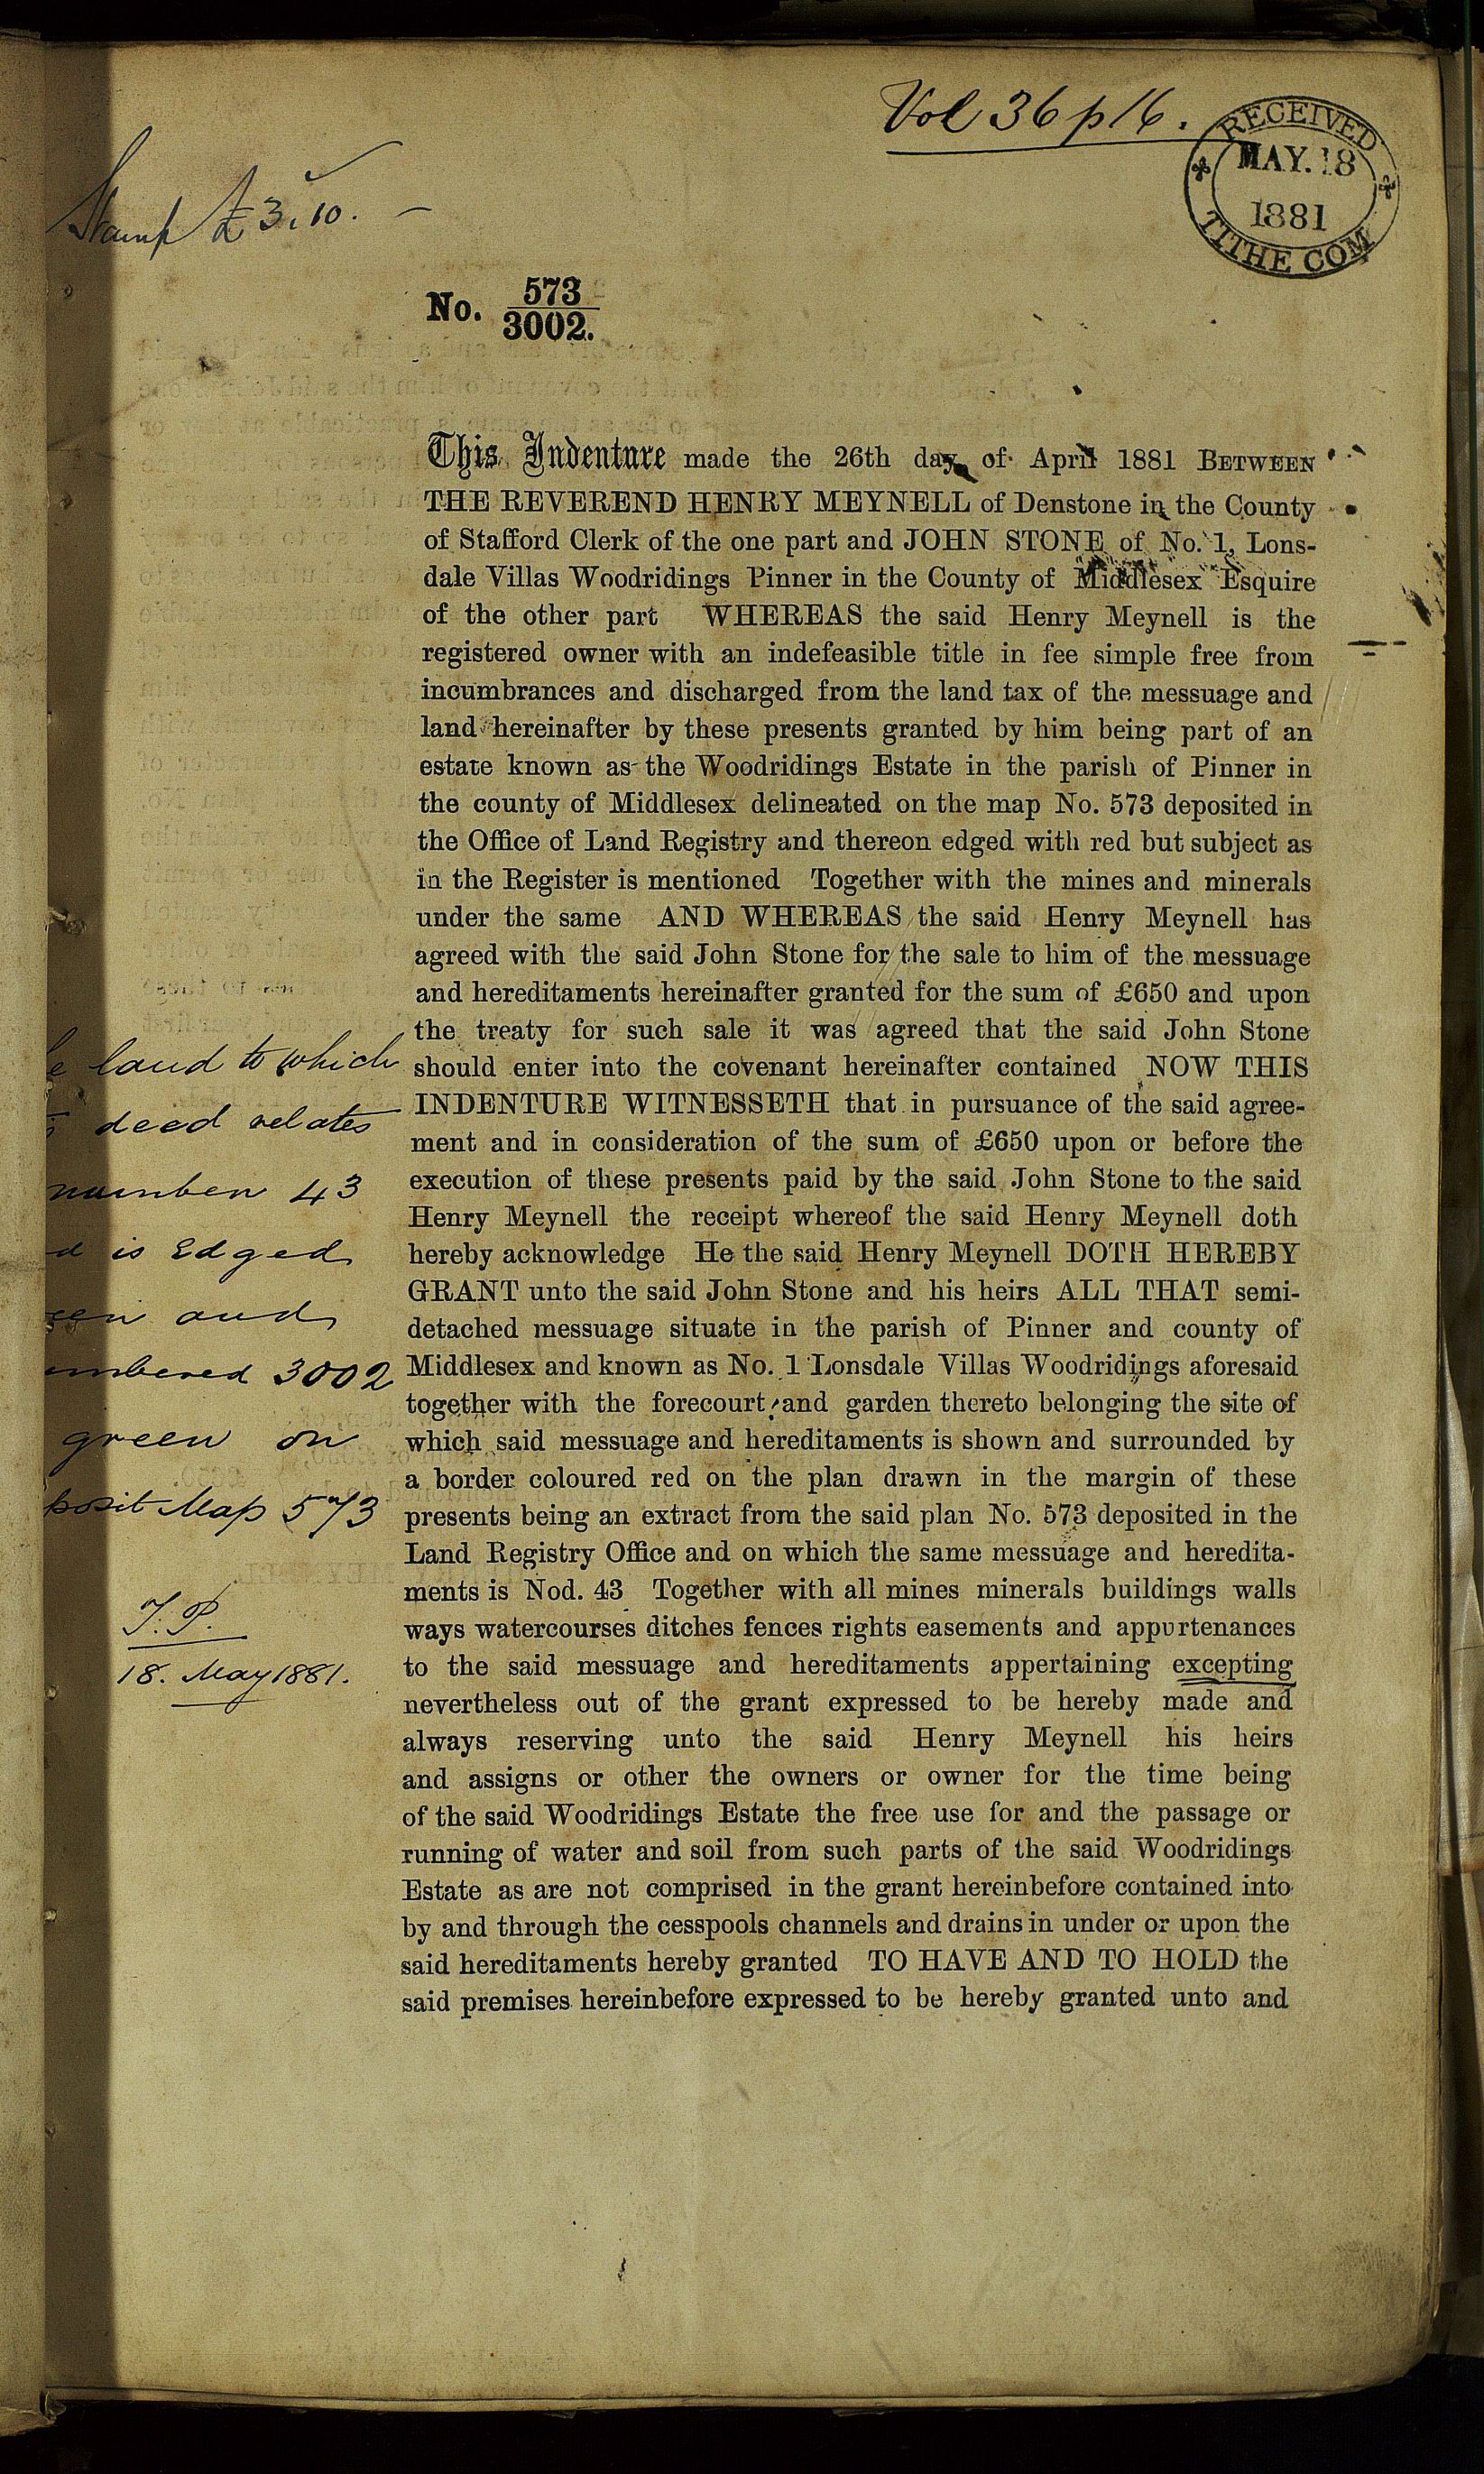 Vol 36 p 16.
RECEIVED
MAY. 18
1881
TITHE COM
Stamp £3.10. –
No. 573
3002.
This Indenture made the 26th day of April 1881 BETWEEN
THE REVEREND HENRY MEYNELL of Denstone in the County
of Stafford Clerk of the one part and JOHN STONE of No. 1, Lons-
dale Villas Woodridings Pinner in the County of Middlesex Esquire
of the other part WHEREAS the said Henry Meynell is the
registered owner with an indefeasible title in fee simple free from
incumbrances and discharged from the land tax of the messuage and
land hereinafter by these presents granted by him being part of an
estate known as the Woodridings Estate in the parish of Pinner in
the county of Middlesex delineated on the map No. 573 deposited in
the Office of Land Registry and thereon edged with red but subject as
in the Register is mentioned Together with the mines and minerals
under the same AND WHEREAS the said Henry Meynell has
agreed with the said John Stone for the sale to him of the messuage
and hereditaments hereinafter granted for the sum of £650 and upon
the treaty for such sale it was agreed that the said John Stone
should enter into the covenant hereinafter contained NOW THIS
INDENTURE WITNESSETH that in pursuance of the said agree-
ment and in consideration of the sum of £650 upon or before the
execution of these presents paid by the said John Stone to the said
Henry Meynell the receipt whereof the said Henry Meynell doth
hereby acknowledge He the said Henry Meynell DOTH HEREBY
GRANT unto the said John Stone and his heirs ALL THAT semi-
detached messuage situate in the parish of Pinner and county of
Middlesex and known as No. 1 Lonsdale Villas Woodridings aforesaid
together with the forecourt and garden thereto belonging the site of
which said messuage and hereditaments is shown and surrounded by
a border coloured red on the plan drawn in the margin of these
presents being an extract from the said plan No. 573 deposited in the
Land Registry Office and on which the same messuage and heredita-
ments is Nod. 43 Together with all mines minerals buildings walls
ways watercourses ditches fences rights easements and appurtenances
to the said messuage and hereditaments appertaining excepting
nevertheless out of the grant expressed to be hereby made and
always reserving unto the said Henry Meynell his heirs
and assigns or other the owners or owner for the time being
of the said Woodridings Estate the free use for and the passage or
running of water and soil from such parts of the said Woodridings
Estate as are not comprised in the grant hereinbefore contained into
by and through the cesspools channels and drains in under or upon the
said hereditaments hereby granted TO HAVE AND TO HOLD the
said premises hereinbefore expressed to be hereby granted unto and
e land to which
deed relates
number 43
d is Edged
een and
umbered 3002
green on
posit Map 573
T. P.
18. May 1881.